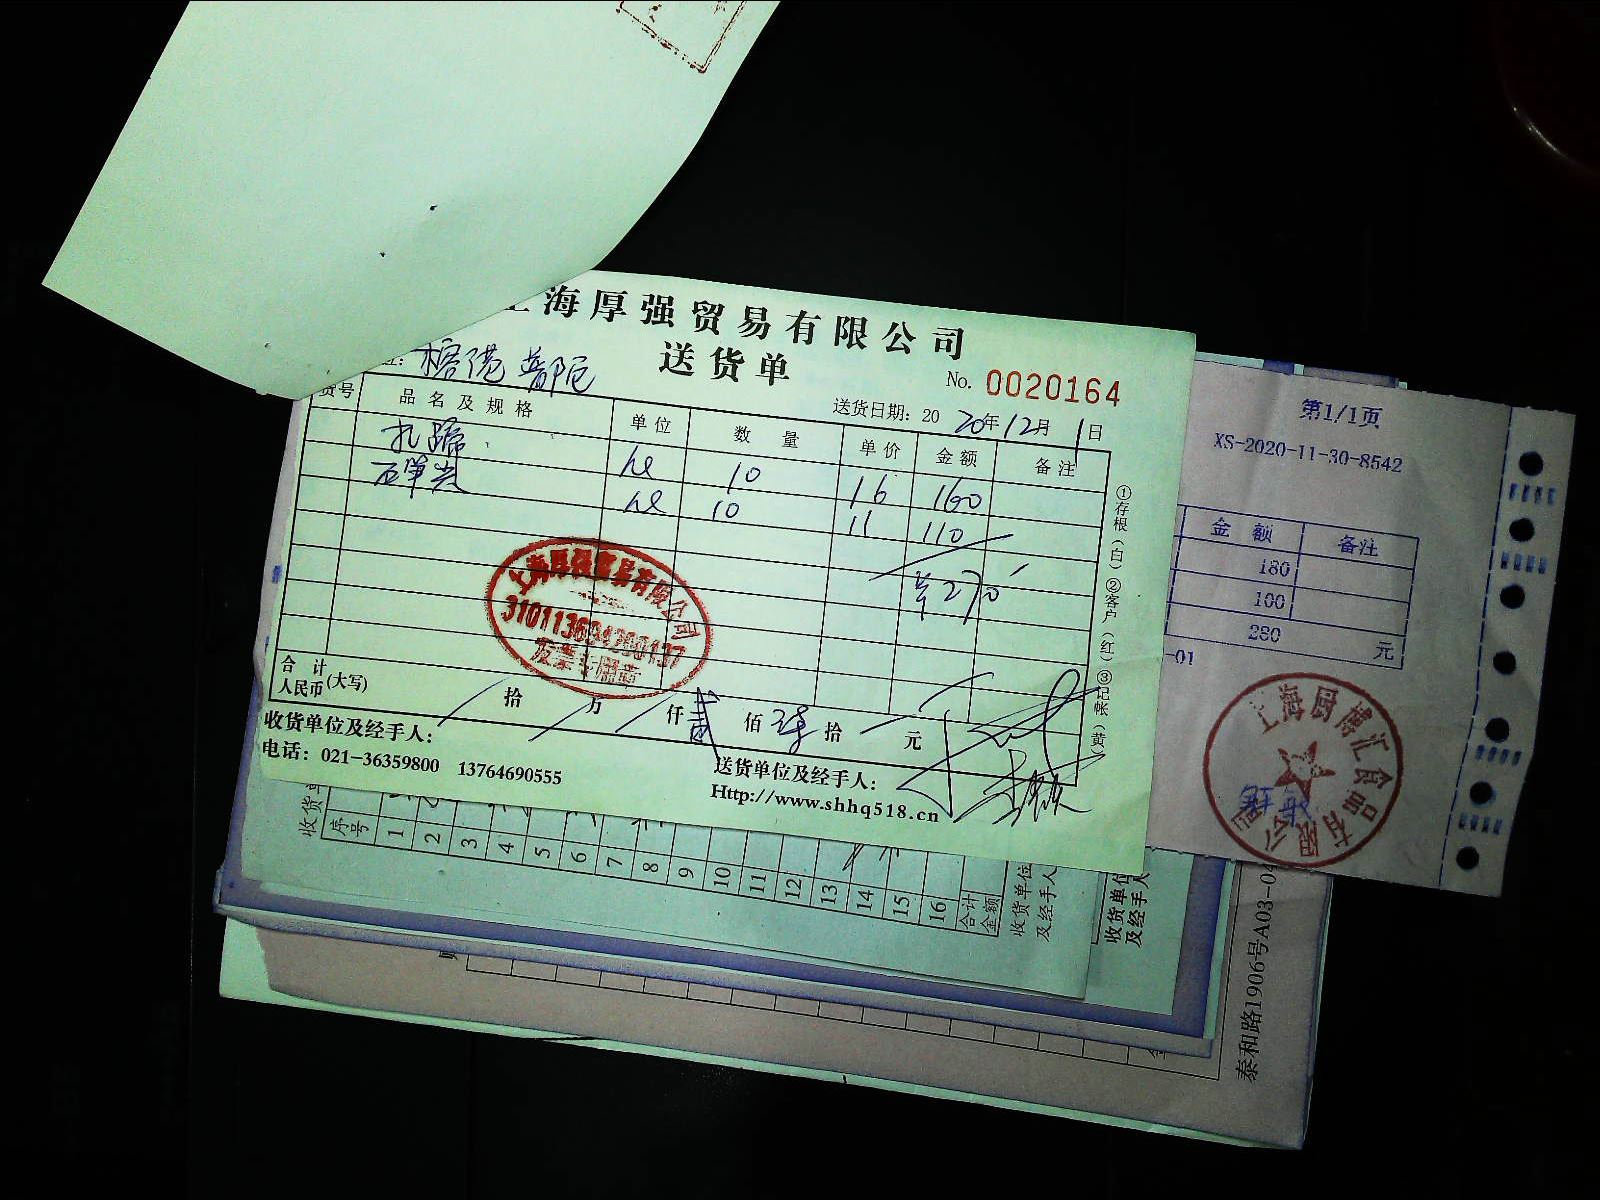 海厚强贸易有限公司
送货单
榕港 普陀
No. 0020164
送货日期: 2020年12月1日
货号 品名及规格 单位 数量 单价 金额 备注
扎蹄 10 16 160
10 11 110
270
上海厚强贸易有限公司
发票专用章
合计人民币(大写) 拾 万 仟 贰 佰 柒 拾 元
收货单位及经手人:
电话: 021-36359800 13764690555
送货单位及经手人:
Http://www.shhq518.cn
①存根(白) ②客户(红) ③记帐(黄)
第1/1页
XS-2020-11-30-8542
金额 备注
180
100
280 元
-01
上海厨博汇食品有限公司
收货单
序号
1 2 3 4 5 6 7 8 9 10 11 12 13 14 15 16
合计金额
收货单位及经手人
收货单位及经手人
泰和路1906号A03-04